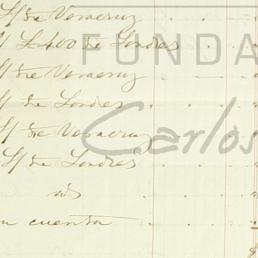 S/ de Veracruz
S/ £400 de Londres
S/ de Veracruz
S/ de Londres
S/ de Veracruz
S/ de Londres
cuenta
FUNDA
Carlos